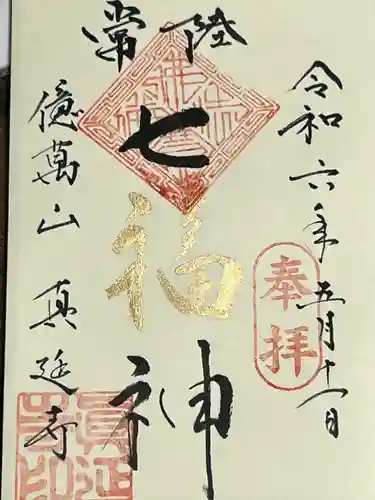 令和六年五月十一日
奉拝
常陸
七福神
億萬山 真延寺